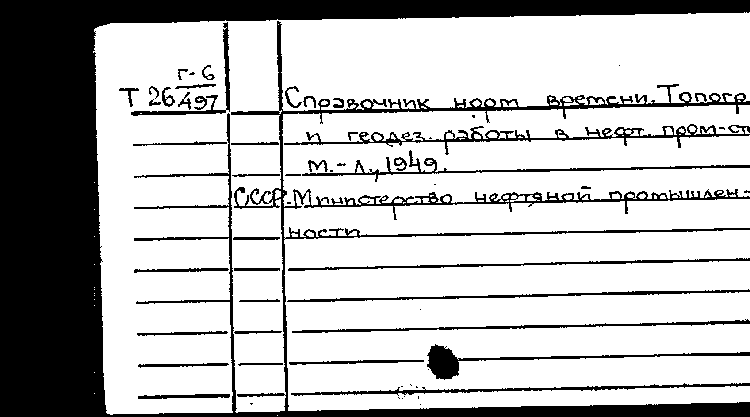 Г-6
Т 26 497 Справочник норм времени. Топогр
и геодез. работы в нефт. пром-ст
М.-Л., 1949.
СССР. Министерство нефтяной промышлен-
ности